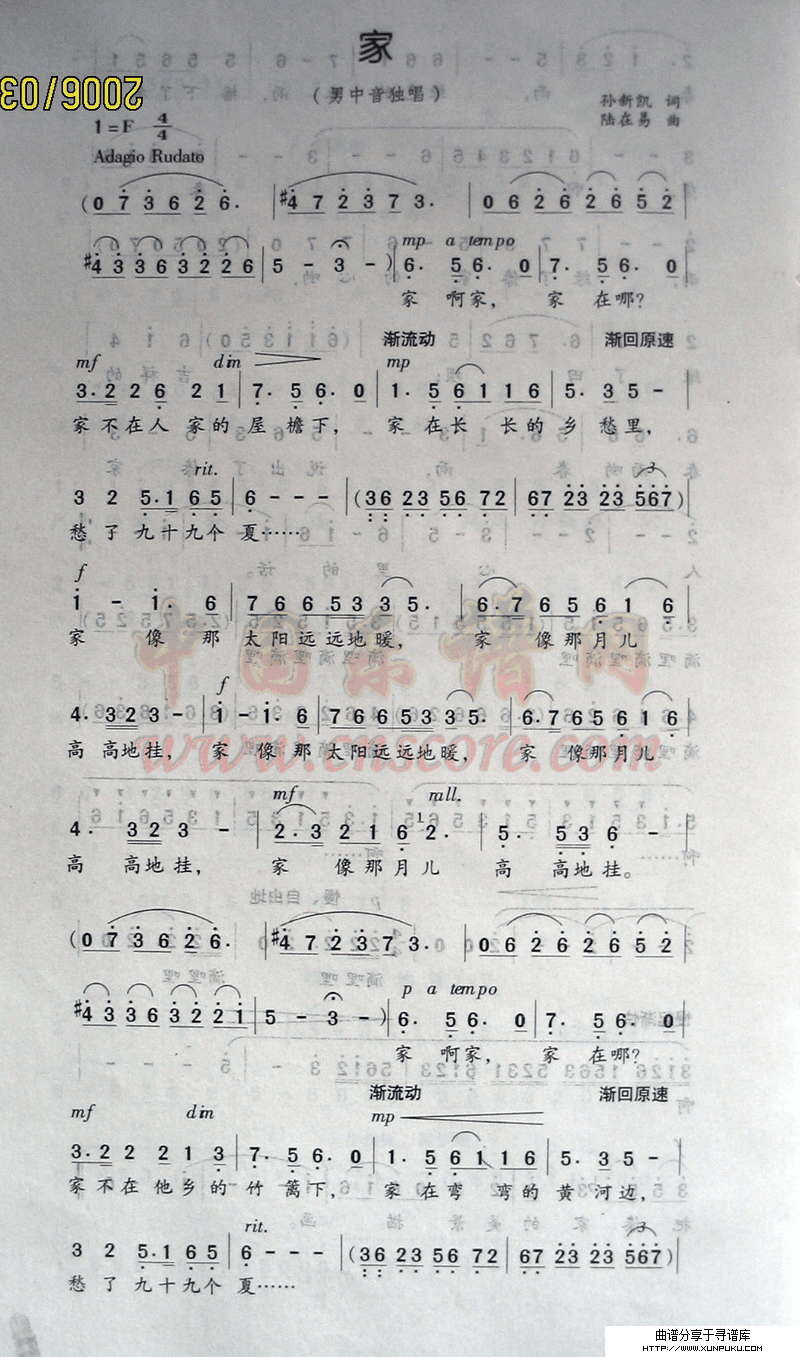 家
(男中音独唱)
2006/03
孙新凯 词
陆在易 曲
1=F 4/4
Adagio Rudato
(0 7 3 6 2 6. | #4 7 2 3 7 3. | 0 6 2 6 2 6 5 2 |
mp a tempo
#4 3 3 6 3 2 2 6 | 5 - 3 -) | 6. 5 6. 0 | 7. 5 6. 0
家 啊家, 家 在哪?
渐流动 渐回原速
mf dim mp
3. 2 2 6 2 1 | 7. 5 6. 0 | 1. 5 6 1 1 6 | 5. 3 5 -
家不在人 家的屋檐下, 家在长 长的乡愁里,
rit. 3
3 2 5. 1 6 5 | 6 - - - | (36 23 56 72 | 67 23 23 567)
愁了九十九个夏……
f
1 - 1. 6 | 7 6 6 5 3 3 5. | 6. 7 6 5 6 1 6
家 像那 太阳远远地暖, 家 像那月儿
f
4. 3 2 3 - | 1 - 1. 6 | 7 6 6 5 3 3 5. | 6. 7 6 5 6 1 6
高 高地挂, 家 像那 太阳远远地暖, 家 像那月儿
mf rall.
4. 3 2 3 - | 2. 3 2 1 6 1 2. | 5. 5 3 6 - |
高 高地挂, 家 像那月儿 高 高地挂。
(0 7 3 6 2 6. | #4 7 2 3 7 3. | 0 6 2 6 2 6 5 2 |
p a tempo
#4 3 3 6 3 2 2 1 | 5 - 3 -) | 6. 5 6. 0 | 7. 5 6. 0
家 啊家, 家 在哪?
渐流动 渐回原速
mf dim mp
3. 2 2 2 1 3 | 7. 5 6. 0 | 1. 5 6 1 1 6 | 5. 3 5 -
家不在他乡的竹篱下, 家在弯 弯的黄河边,
rit. 3
3 2 5. 1 6 5 | 6 - - - | (36 23 56 72 | 67 23 23 567)
愁了九十九个夏……
中国乐谱网
www.cnscore.com
曲谱分享于寻谱库
HTTP://WWW.XUNPUKU.COM